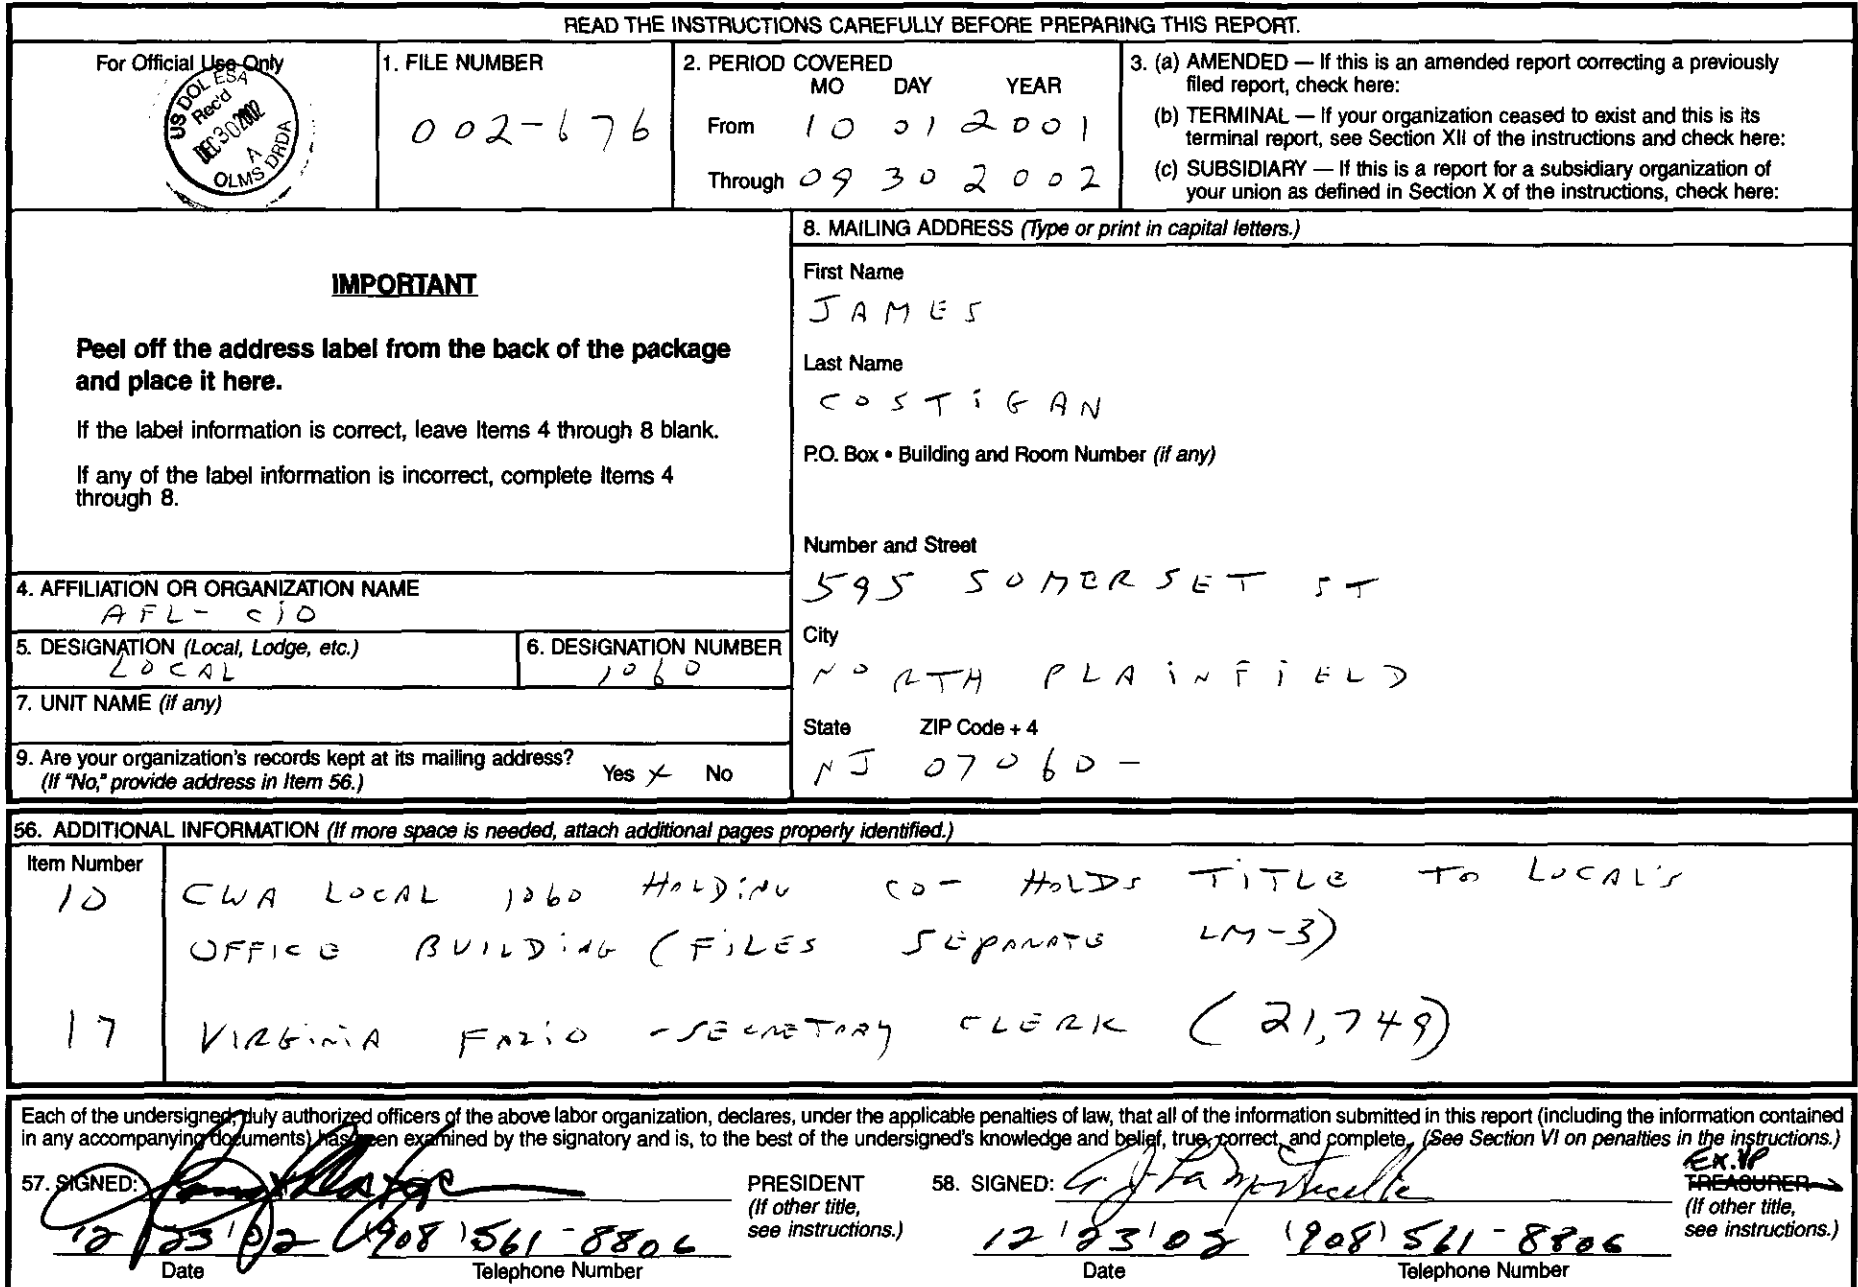 READ THE INSTRUCTIONS CAREFULLY BEFORE PREPARING THIS REPORT.
For Official Use Only
US DOL ESA
Rec'd
DEC 30 2002
A
OLMS DRDA
1. FILE NUMBER
002-676
2. PERIOD COVERED
MO DAY YEAR
From 10 01 2001
Through 09 30 2002
3. (a) AMENDED — If this is an amended report correcting a previously
filed report, check here:
(b) TERMINAL — If your organization ceased to exist and this is its
terminal report, see Section XII of the instructions and check here:
(c) SUBSIDIARY — If this is a report for a subsidiary organization of
your union as defined in Section X of the instructions, check here:
IMPORTANT
Peel off the address label from the back of the package
and place it here.
If the label information is correct, leave Items 4 through 8 blank.
If any of the label information is incorrect, complete Items 4
through 8.
4. AFFILIATION OR ORGANIZATION NAME
AFL-CIO
5. DESIGNATION (Local, Lodge, etc.)
LOCAL
6. DESIGNATION NUMBER
1060
7. UNIT NAME (if any)
9. Are your organization's records kept at its mailing address?
(If "No," provide address in Item 56.)
Yes X No
8. MAILING ADDRESS (Type or print in capital letters.)
First Name
JAMES
Last Name
COSTIGAN
P.O. Box • Building and Room Number (if any)
Number and Street
595 SOMERSET ST
City
NORTH PLAINFIELD
State ZIP Code + 4
NJ 07060-
56. ADDITIONAL INFORMATION (If more space is needed, attach additional pages properly identified.)
Item Number
10 CWA LOCAL 1060 HOLDING CO- HOLDS TITLE TO LOCAL'S
OFFICE BUILDING (FILES SEPARATE LM-3)
17 VIRGINIA FAZIO -SECRETARY CLERK (21,749)
Each of the undersigned, duly authorized officers of the above labor organization, declares, under the applicable penalties of law, that all of the information submitted in this report (including the information contained
in any accompanying documents) has been examined by the signatory and is, to the best of the undersigned's knowledge and belief, true, correct, and complete. (See Section VI on penalties in the instructions.)
57. SIGNED:
PRESIDENT
(If other title,
see instructions.)
12/23/02 (908) 561-8806
Date Telephone Number
58. SIGNED:
EX.VP
TREASURER
(If other title,
see instructions.)
12/23/02 (908) 561-8806
Date Telephone Number